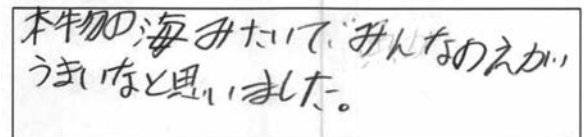 本物の海みたいで、みんなのえがい
うまいなと思いました。